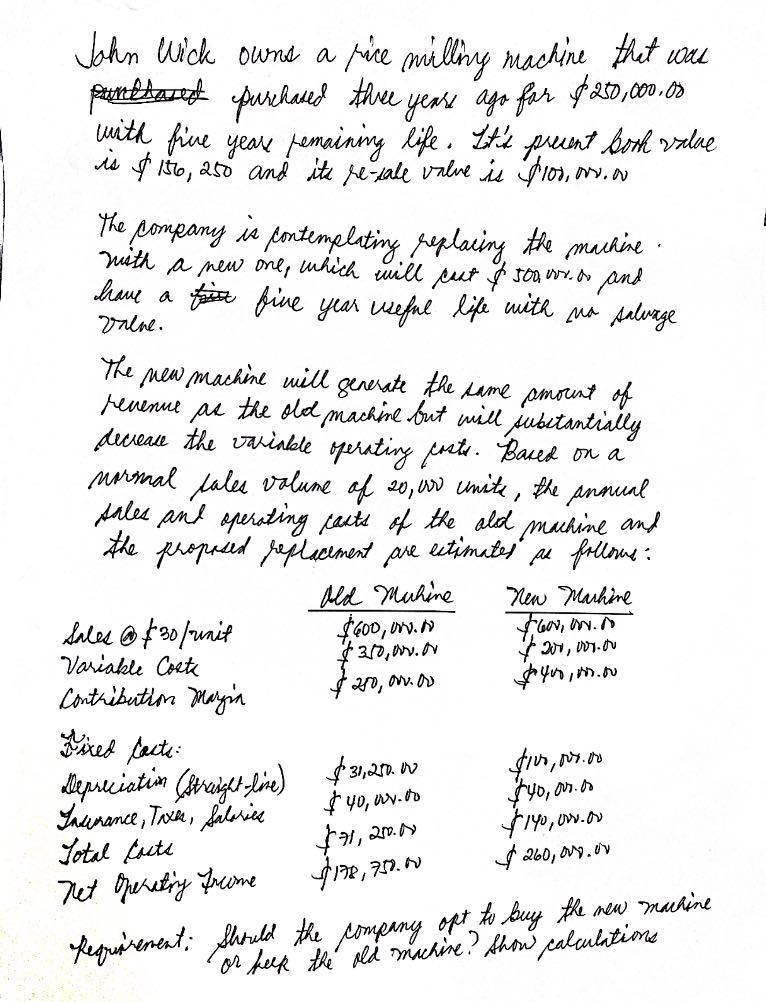 John Wick owns a rice milling machine that was
purchased purchased three years ago for $250,000.00
with five years remaining life. It's present book value
is $156,250 and its re-sale value is $100,000.00
The company is contemplating replacing the machine.
with a new one, which will cost $500,000.00 and
have a five year useful life with no salvage
value.
The new machine will generate the same amount of
revenue as the old machine but will substantially
decrease the variable operating costs. Based on a
normal sales volume of 20,000 units, the annual
sales and operating costs of the old machine and
the proposed replacement are estimated as follows:
Old Machine New Machine
Sales @ $30/unit $600,000.00 $600,000.00
Variable Costs $350,000.00 $200,000.00
Contribution Margin $250,000.00 $400,000.00
Fixed Costs:
Depreciation (Straight-line) $31,250.00 $100,000.00
Insurance, Taxes, Salaries $40,000.00 $40,000.00
Total Costs $71,250.00 $140,000.00
Net Operating Income $178,750.00 $260,000.00
Requirement: Should the company opt to buy the new machine
or keep the old machine? Show calculations